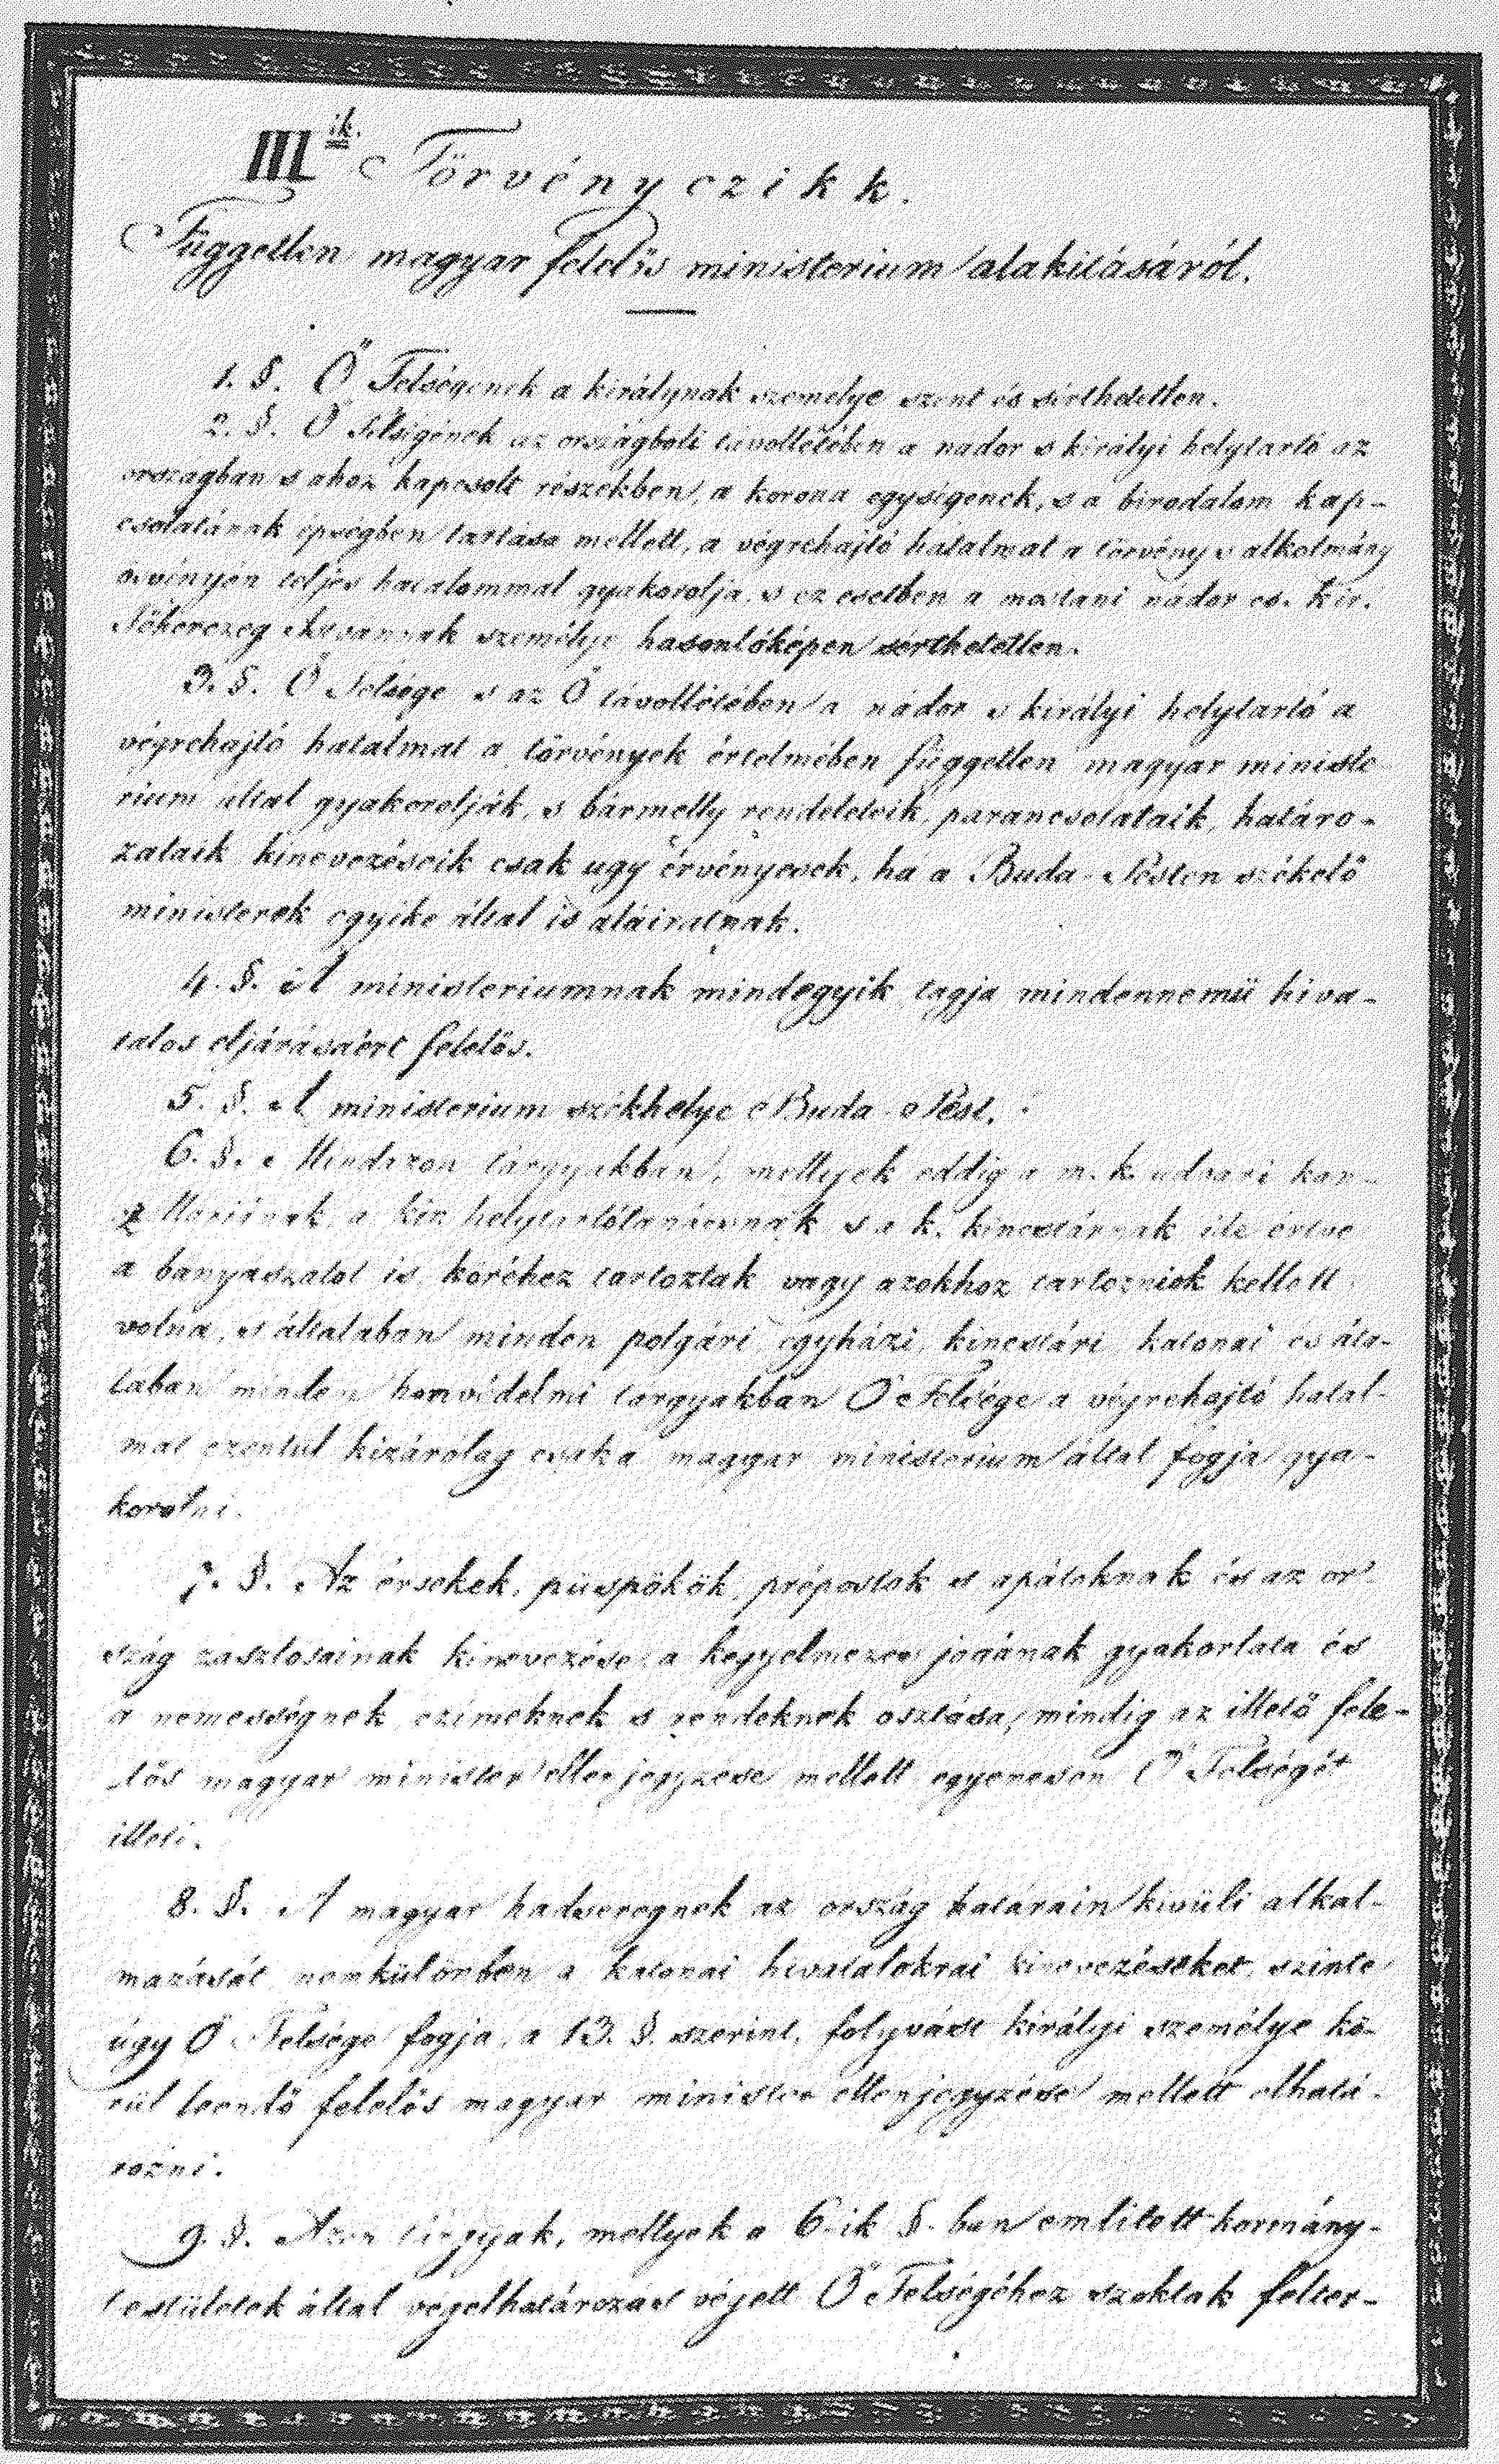 III^ik. Törvényczikk.
Független magyar felelős ministerium alakításáról.
1. §. Ő Felségének a királynak személye szent és sérthetetlen.
2. §. Ő Felségének az országbóli távollétében a nador s királyi helytartó az
országban s ahoz kapcsolt részekben, a korona egységének, s a birodalom kap-
csolatának épségben tartása mellett, a végrehajtó hatalmat a törvény s alkotmány
ösvényén teljes hatalommal gyakorolja, s ez esetben a mostani nádor cs. kir.
Főherczeg Istvánnak személye hasonlóképen sérthetetlen.
3. §. Ő Felsége s az Ő távollétében a nádor s királyi helytartó a
végrehajtó hatalmat a törvények értelmében független magyar ministe
rium által gyakorolják, s bármelly rendeleteik, parancsolataik, határo-
zataik, kinevezéseik csak ugy érvényesek, ha a Buda-Pesten székelő
ministerek egyike által is aláiratnak.
4. §. A ministeriumnak mindegyik tagja mindennemü hiva-
talos eljárásáért felelős.
5. §. A ministerium székhelye Buda-Pest.
6. §. Mindazon tárgyakban, mellyek eddig a m. k. udvari kan-
czellariának, a kir. helytartótanácsnak s a k. kincstárnak ide értve
a bányászatot is, köréhez tartoztak vagy azokhoz tartozniok kellett
volna, s általában minden polgári egyházi, kincstári, katonai és álta-
lában minden honvédelmi tárgyakban Ő Felsége a végrehajtó hatal-
mat ezentúl kizárólag csak a magyar ministerium által fogja gya-
korolni.
7. §. Az érsekek, püspökök, prépostok s apátoknak és az or
szág zászlósainak kinevezése, a kegyelmezés jogának gyakorlata és
a nemességnek czímeknek s rendeknek osztása, mindig az illető fele-
lős magyar minister ellenjegyzése mellett egyenesen Ő Felségét
illeti.
8. §. A magyar hadseregnek az ország határain kivüli alkal-
mazását, nemkülönben a katonai hivatalokrai kinevezéseket, szinte
úgy Ő Felsége fogja, a 13. §. szerint, folyvást királyi személye kö-
rül leendő felelős magyar minister ellenjegyzése mellett elhatá-
rozni.
9. §. Azon tárgyak, mellyek a 6-ik §-ban emlitett kormány-
testületek által végelhatározás végett Ő Felségéhez szoktak felter-